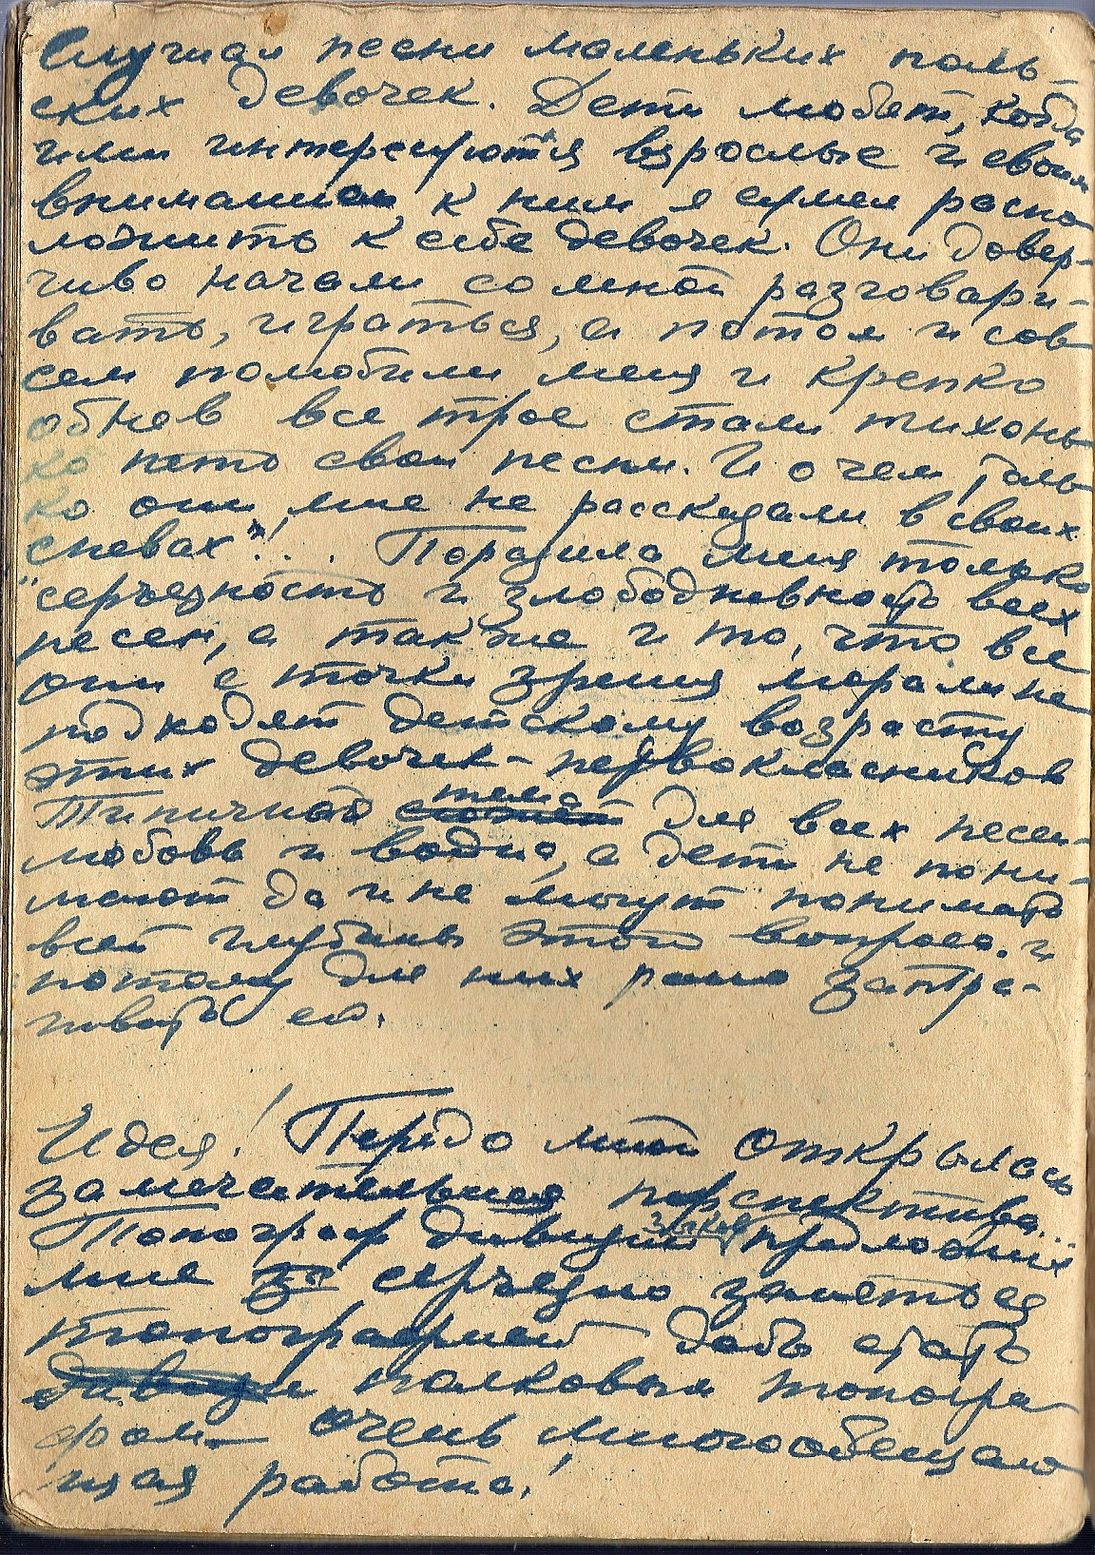 Слушал песни маленьких поль-
ских девочек. Дети любят, когда
ими интересуются взрослые и своим
вниманием к ним я сумел распо
ложить к себе девочек. Они довер-
чиво начали со мной разговари-
вать, играться, а потом и сов
сем полюбили меня и крепко
обняв все трое стали тихонь
ко петь свои песни. И о чем толь
ко они мне не рассказали в своих
спевах"!.. Поразила меня только
"серъезность и злободневность всех
песен, а также и то, что все
они с точки зрения морали не
подходят детскому возрасту
этих девочек-первокласников
Типичной тема для всех песен-
любовь и водка, а дети не пони-
мают да и не могут понимать
всей глубины этого вопроса. и
потому для них рано затра-
гивать ею.
Идея! Передо мной открылась
замечательная перспектива...
Топограф дивизии предложил
мне серъезно заняться
топографией дабы стать
полковым топогра
фом— очень многообещаю
щая работа!